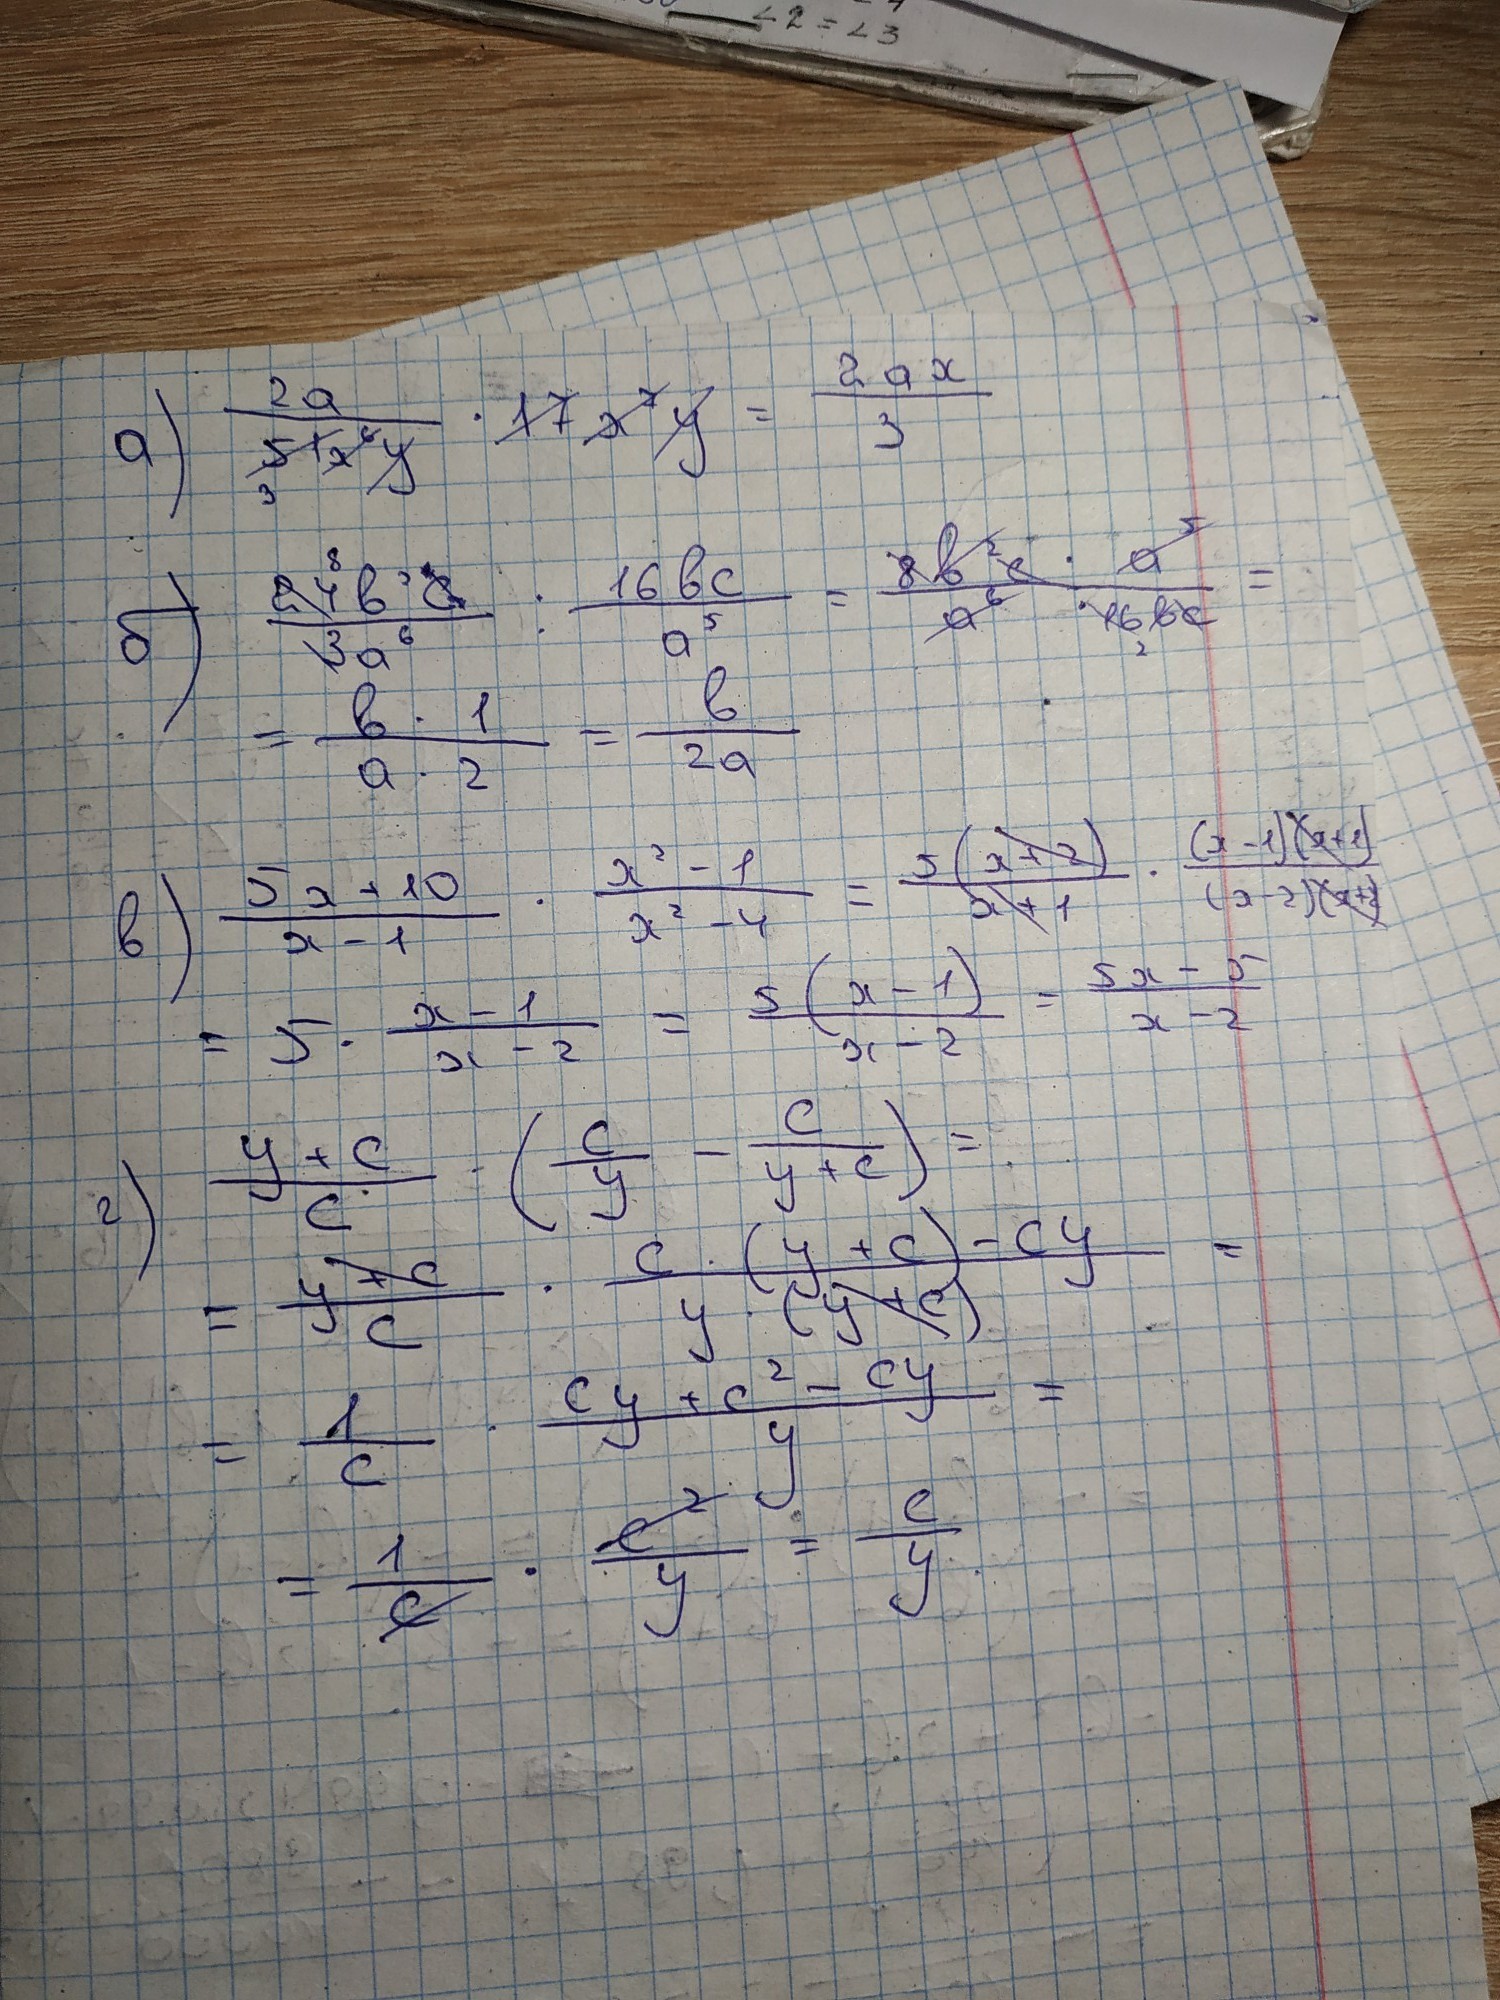 ∠2 = ∠3
а) 2a/(51x⁶y) · 17x⁷y = 2ax/3
б) 24b³c/(3a⁶) : 16bc/a⁵ = 8b²c/a⁶ · a⁵/(16bc) =
= b · 1/(a · 2) = b/(2a)
в) (5x + 10)/(x - 1) · (x² - 1)/(x² - 4) = 5(x + 2)/(x + 1) · (x - 1)(x + 1)/((x - 2)(x + 2))
= 5 · (x - 1)/(x - 2) = 5(x - 1)/(x - 2) = (5x - 5)/(x - 2)
г) (y + c)/c · (c/y - c/(y + c)) =
= (y + c)/c · (c · (y + c) - cy)/(y · (y + c)) =
= 1/c · (cy + c² - cy)/y =
= 1/c · c²/y = c/y